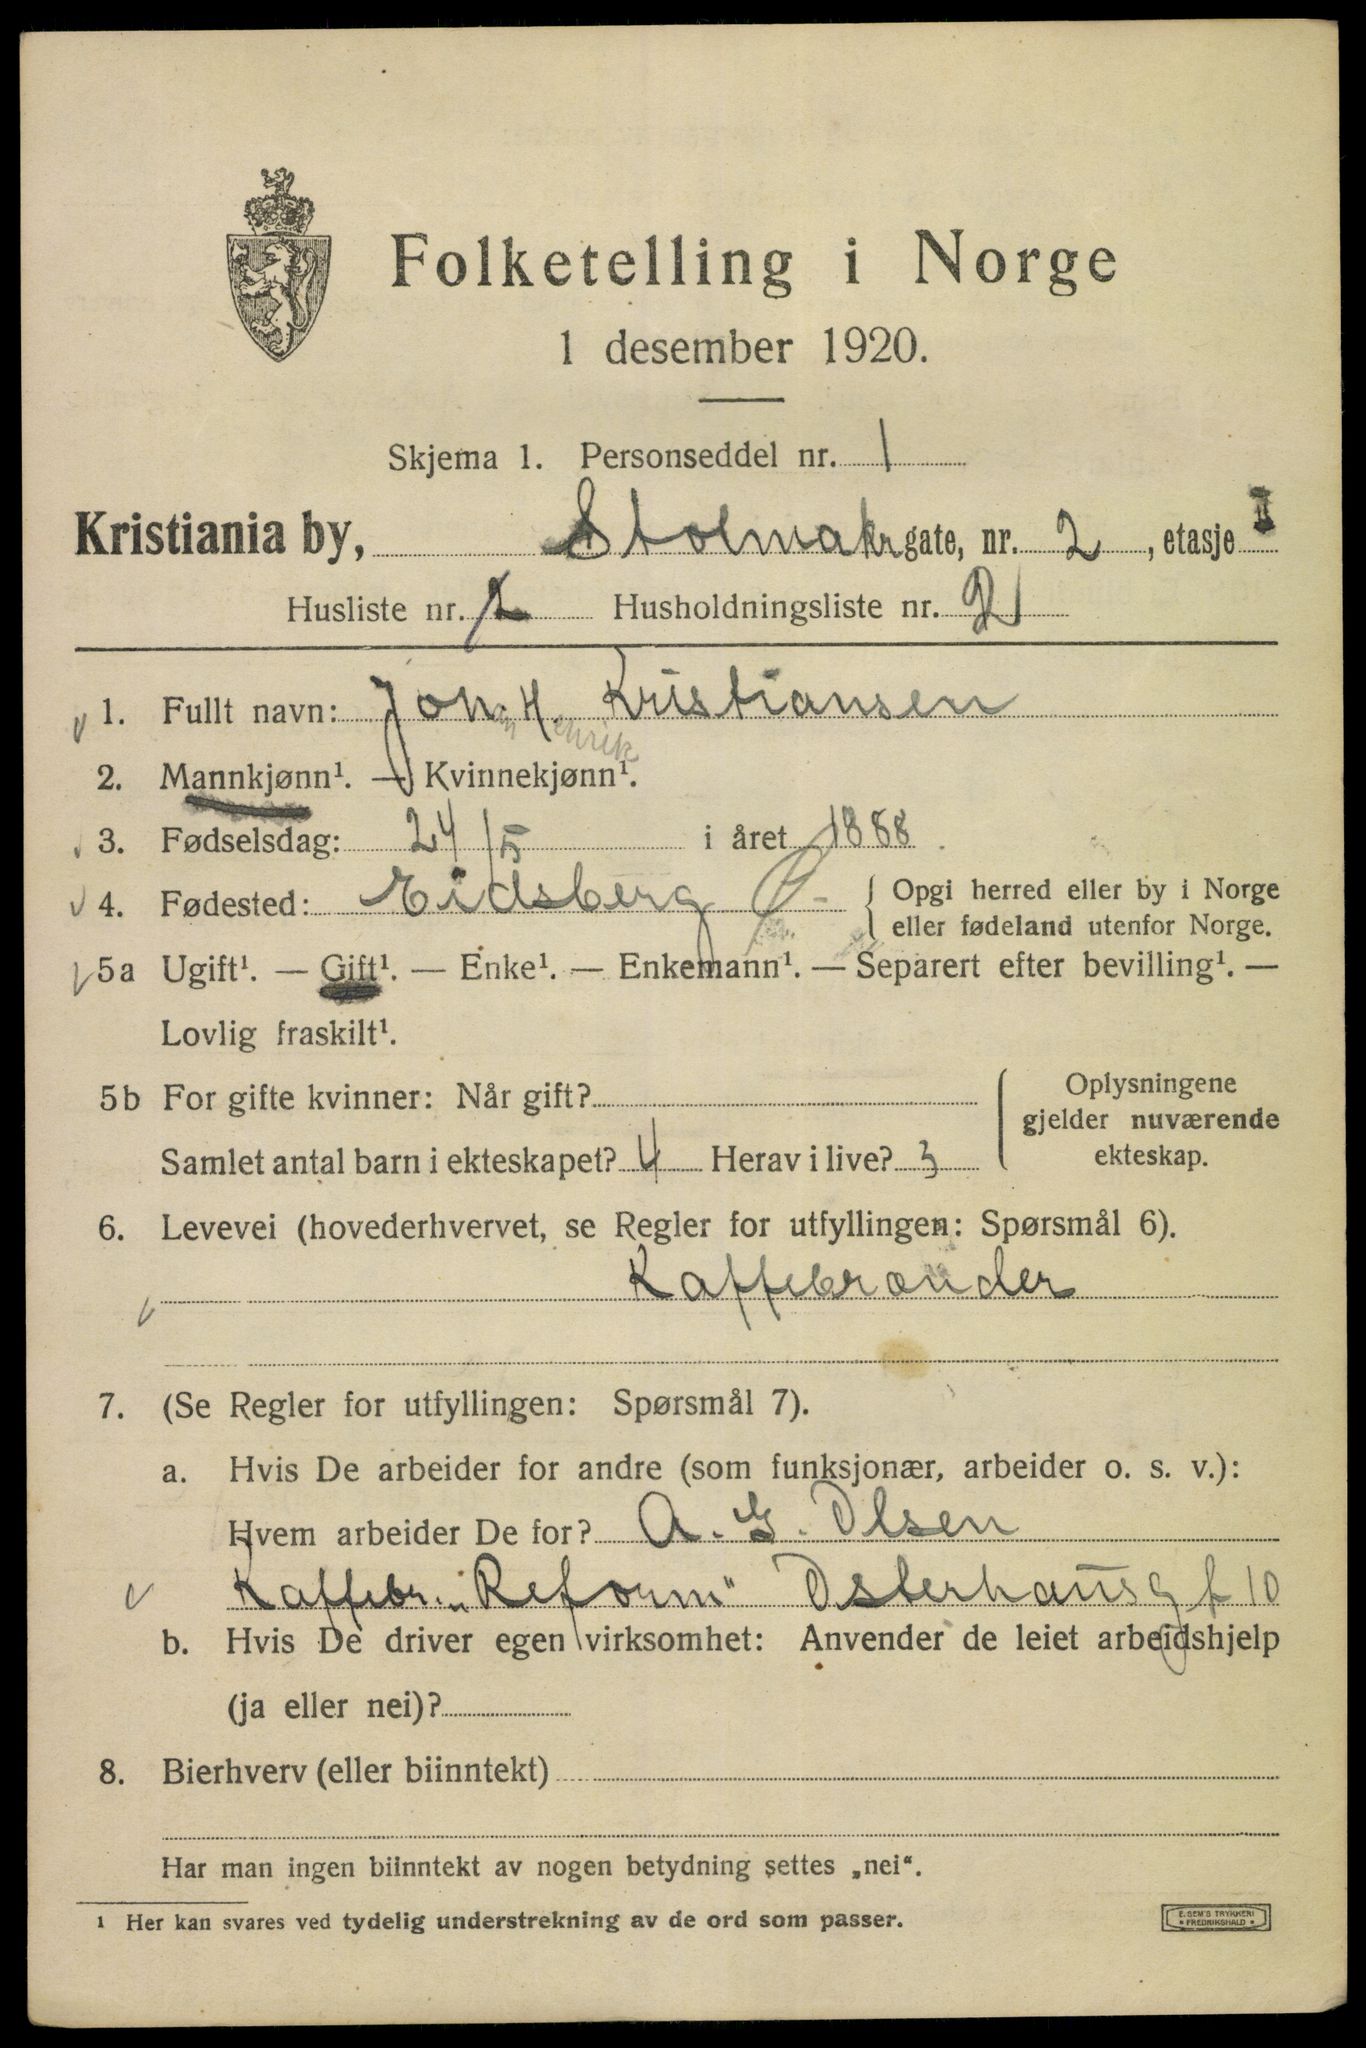 Folketelling i Norge
1 desember 1920.
Skjema 1. Personseddel nr. 1
Kristiania by, Stolmakr gate, nr. 2, etasje II
Husliste nr. Husholdningsliste nr. 2
1. Fullt navn: Joh. H. Kristiansen
enrik
2. Mannkjønn¹. — Kvinnekjønn¹.
3. Fødselsdag: 24/5 i året 1888.
4. Fødested: Eidsberg Ø { Opgi herred eller by i Norge
eller fødeland utenfor Norge.
5a Ugift¹. — Gift¹. — Enke¹. — Enkemann¹. — Separert efter bevilling¹. —
Lovlig fraskilt¹.
5b For gifte kvinner: Når gift? Oplysningene
gjelder nuværende
Samlet antal barn i ekteskapet? 4 Herav i live? 3 ekteskap.
6. Levevei (hovederhvervet, se Regler for utfyllingen: Spørsmål 6).
Kaffebrænder
7. (Se Regler for utfyllingen: Spørsmål 7).
a. Hvis De arbeider for andre (som funksjonær, arbeider o. s. v.):
Hvem arbeider De for? A. G. Olsen
Kaffebr. „Reform" Osterhausgt 10
b. Hvis De driver egen virksomhet: Anvender de leiet arbeidshjelp
(ja eller nei)?
8. Bierhverv (eller biinntekt)
Har man ingen biinntekt av nogen betydning settes „nei".
¹ Her kan svares ved tydelig understrekning av de ord som passer.
E. SEM'S TRYKKERI
• FREDRIKSHALD •